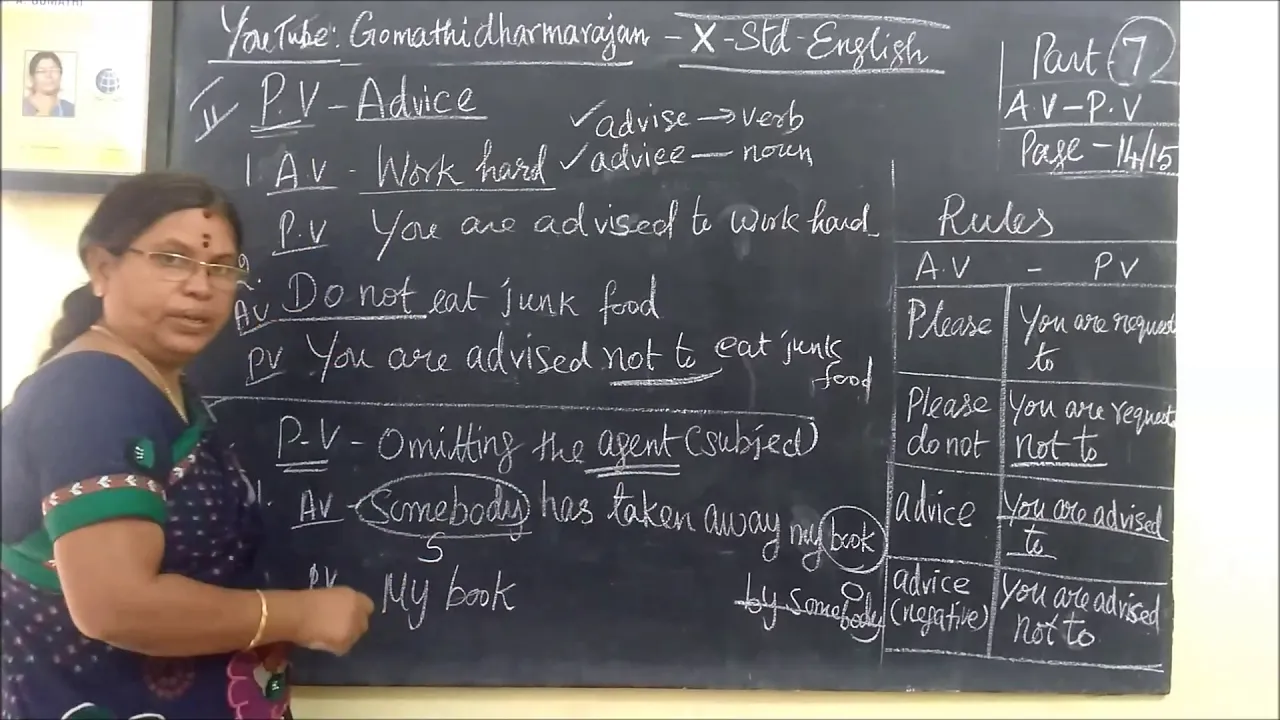 YouTube: Gomathidharmarajan - X - Std - English
Part - 7
A.V - P.V
Page - 14/15
II P.V - Advice
✓ advise → verb
✓ advice — noun
1 A.V - Work hard
P.V You are advised to work hard
2.
AV Do not eat junk food
PV You are advised not to eat junk food
P-V - Omitting the agent (subject)
1. AV - Somebody has taken away my book
S O
PV My book by somebody
Rules
A.V - PV
Please You are request to
Please do not You are request not to
advice You are advised to
advice (negative) You are advised not to